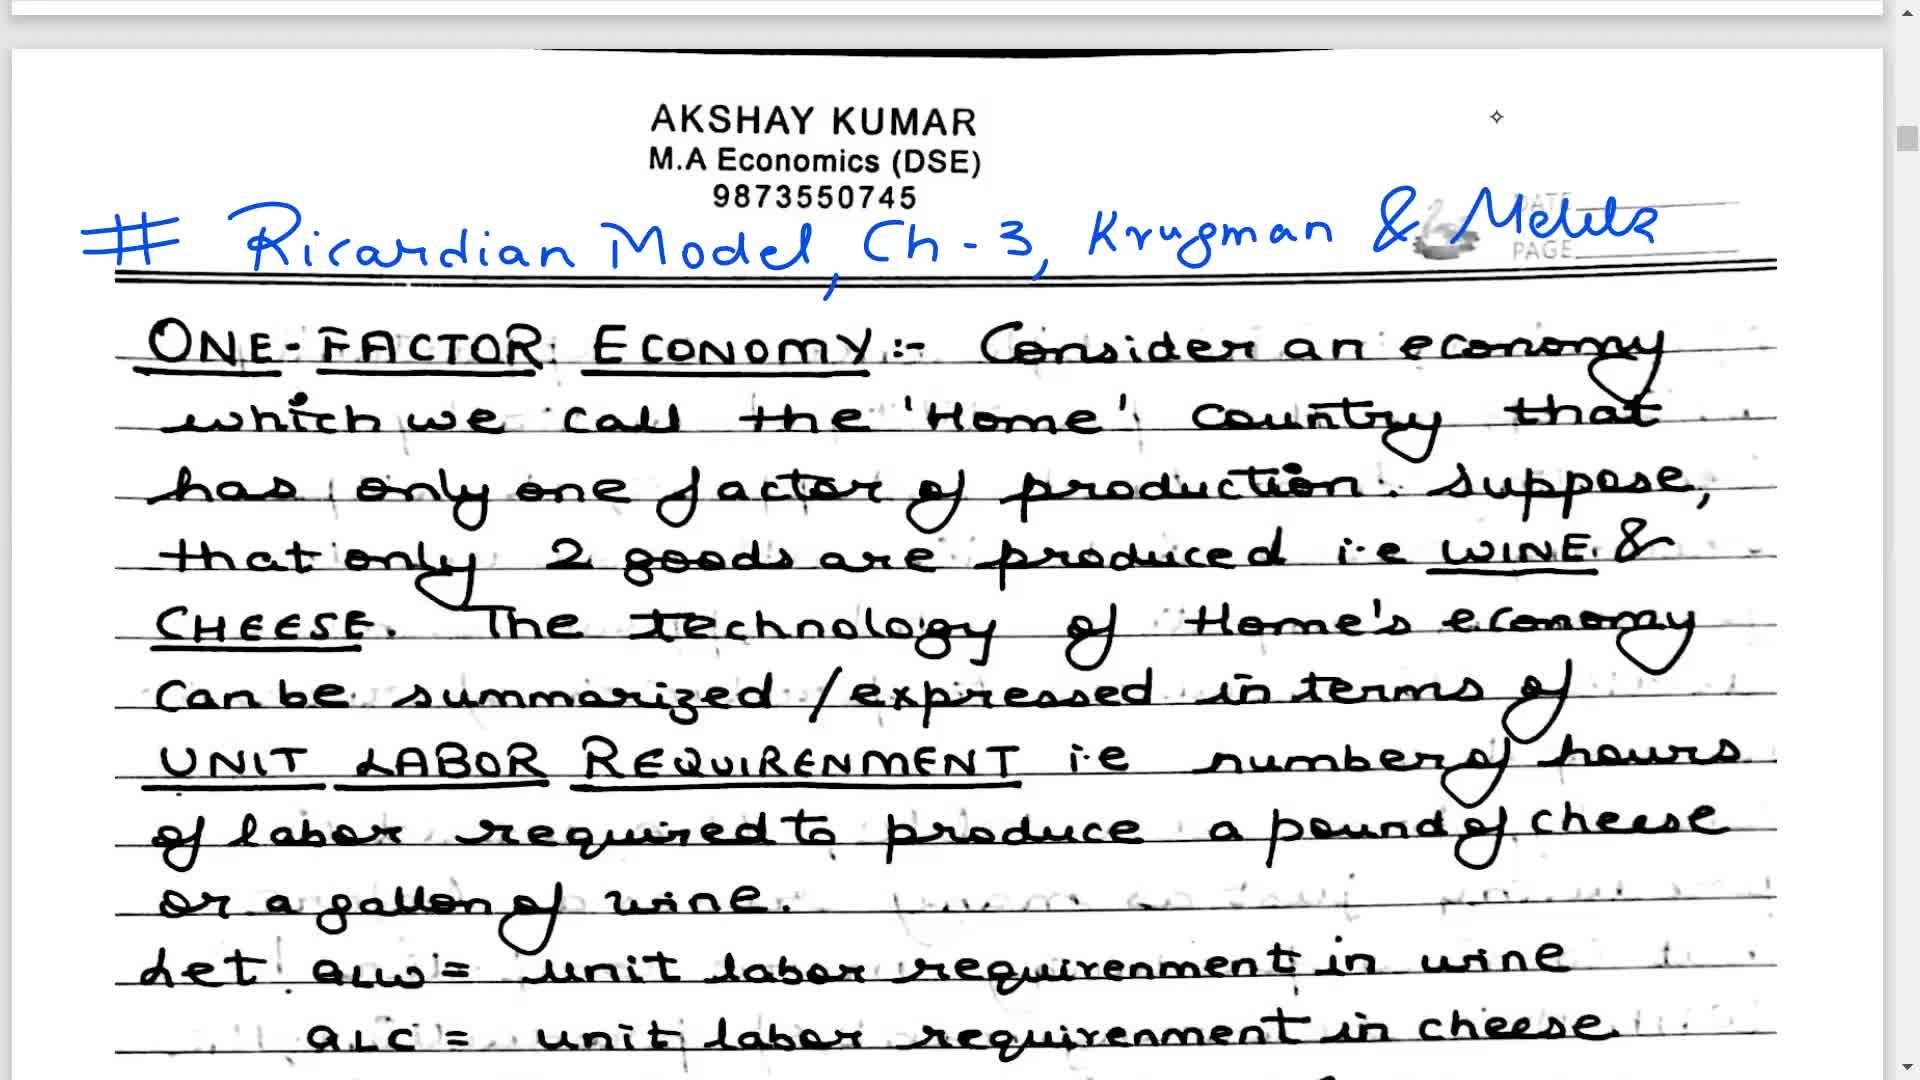 AKSHAY KUMAR
M.A Economics (DSE)
9873550745
DATE
# Ricardian Model, Ch - 3, Krugman & Melitz
PAGE
ONE-FACTOR ECONOMY :- Consider an economy
which we call the 'Home' country that
has only one factor of production. Suppose,
that only 2 goods are produced i.e WINE &
CHEESE. The technology of Home's economy
can be summarized / expressed in terms of
UNIT LABOR REQUIRENMENT i.e number of hours
of labor required to produce a pound of cheese
or a gallon of wine.
Let aLW = unit labor requirenment in wine
aLC = unit labor requirenment in cheese